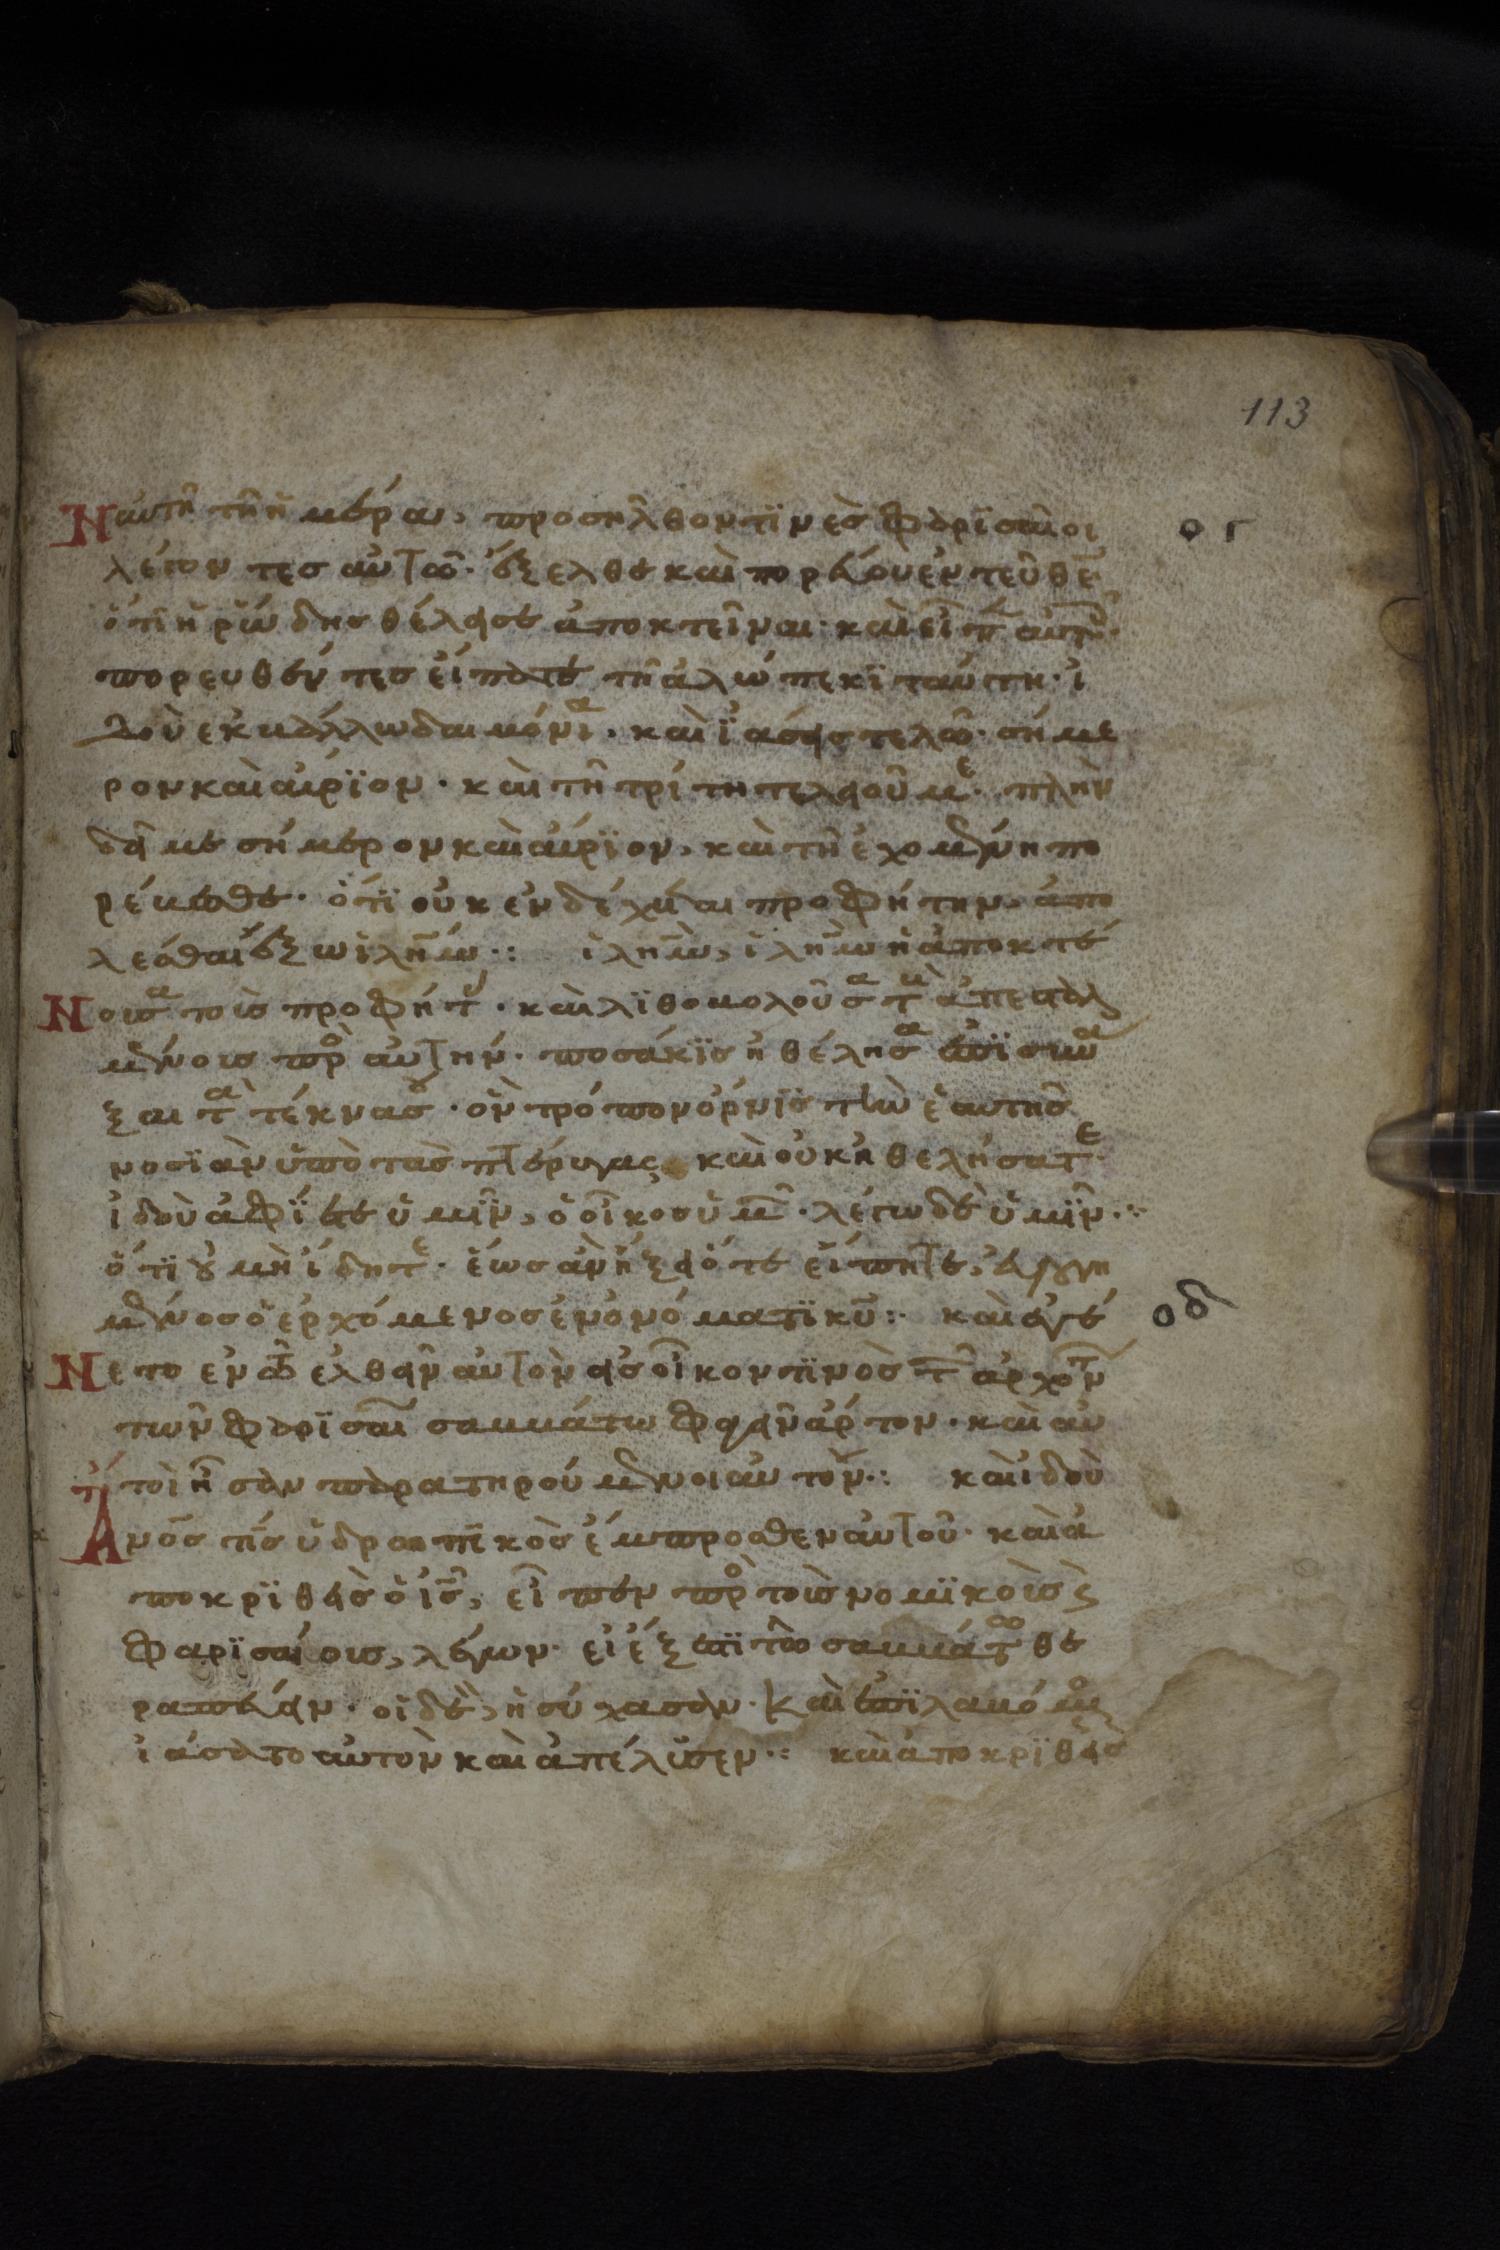 113
Ν αυτῆ τῆ ἡμέρα, προσῆλθον τϊνὲς φαρϊσαῖοι ογ
λέγοντες αὐτῶ· ἔξελθε καὶ πορεύου ἐντεῦθε̄·
ὅτι ἡρώδης θέλει σε ἀποκτεῖναι· καὶ εἶπ αὐτοῖς·
πορευθέντες εἴπατε τῆ ἀλώπεκϊ ταύτη· ἰ
δοὺ ἐκβάλλω δαιμόνια· καὶ ϊάσεις τελῶ· σήμε
ρον καὶ αὔρϊον· καὶ τῆ τρίτη τελειοῦμε· πλὴν
δεῖ με σήμερον καὶ αὔρϊον, καὶ τῆ ἐχομένη πο
ρέυεσθε· ὅτϊ οὐκ ἐνδέχεται προφήτην, ἀπο
λέσθαι ἔξω ἰλῆμ·: ἰλῆμ, ἰλῆμ ἡ ἀποκτέ
Ν ουσα τοὺς προφήτ· καὶ λϊθοβολοῦσα τοὺ ἀπεσταλ
μένους πρὸ αὐτήν· ποσάκϊς ἠθέλησα ἐπϊσυνα
ξαι τὰ τέκνα σου· ὃν τρόπον ὄρνϊς τὴν ἑαυτῆς
νοσϊὰν ὑπὸ τὰς πτέρυγας, καὶ οὐκ ἠθελήσατε·
ἰδοὺ ἀφΐεται ὑμῖν, ὁ οἶκος ὑμ̄· λέγω δὲ ὑμῖν·:
ὅτϊ ȣ μὴ ἴδητε· ἕως ἂν ἥξει ὅτε εἴπητε, ἐυλογη
μένος ὁ ἐρχόμενος ἐν ὀνόματϊ κ̄υ·: καὶ ἐγέ οδ
Ν ετο ἐν τῶ ἐλθεῖν αὐτὸν εἰς οἶκον τϊνὸς τ̄ ἀρχόντ
τῶν φαρϊσαί σαββάτω φαγεῖν ἄρτον· καὶ αὐ
τοὶ ἦσαν παρατηρούμενοι αὐτόν·: καὶ ἰδοὺ
Α νο̄ς τῑς ὑδρωπϊκὸς ἔμπροσθεν αὐτοῦ· καὶ ἀ
ποκρϊθεὶς ὁ ῑς, εἶπεν πρὸ τοὺς νομϊκοὺς ϗ
φαρϊσαίους, λέγων· εἰ ἔξεστϊ τῶ σαββάτω θε
ραπεύειν· οἱ δὲ, ἡσύχασαν· καὶ ἐπϊλαβόμο
ἰάσατο αὐτὸν καὶ ἀπέλϋσεν·: καὶ ἀποκρϊθεὶς